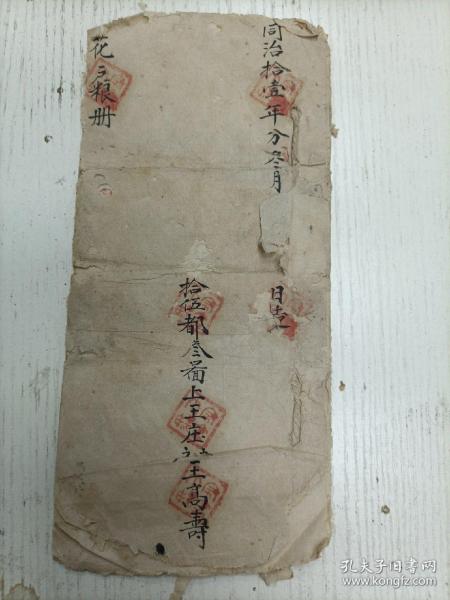 同治拾壹年分叁月
日立
拾伍都叁啚上王庄
王高壽
花户粮册
孔夫子旧书网
www.kongfz.com